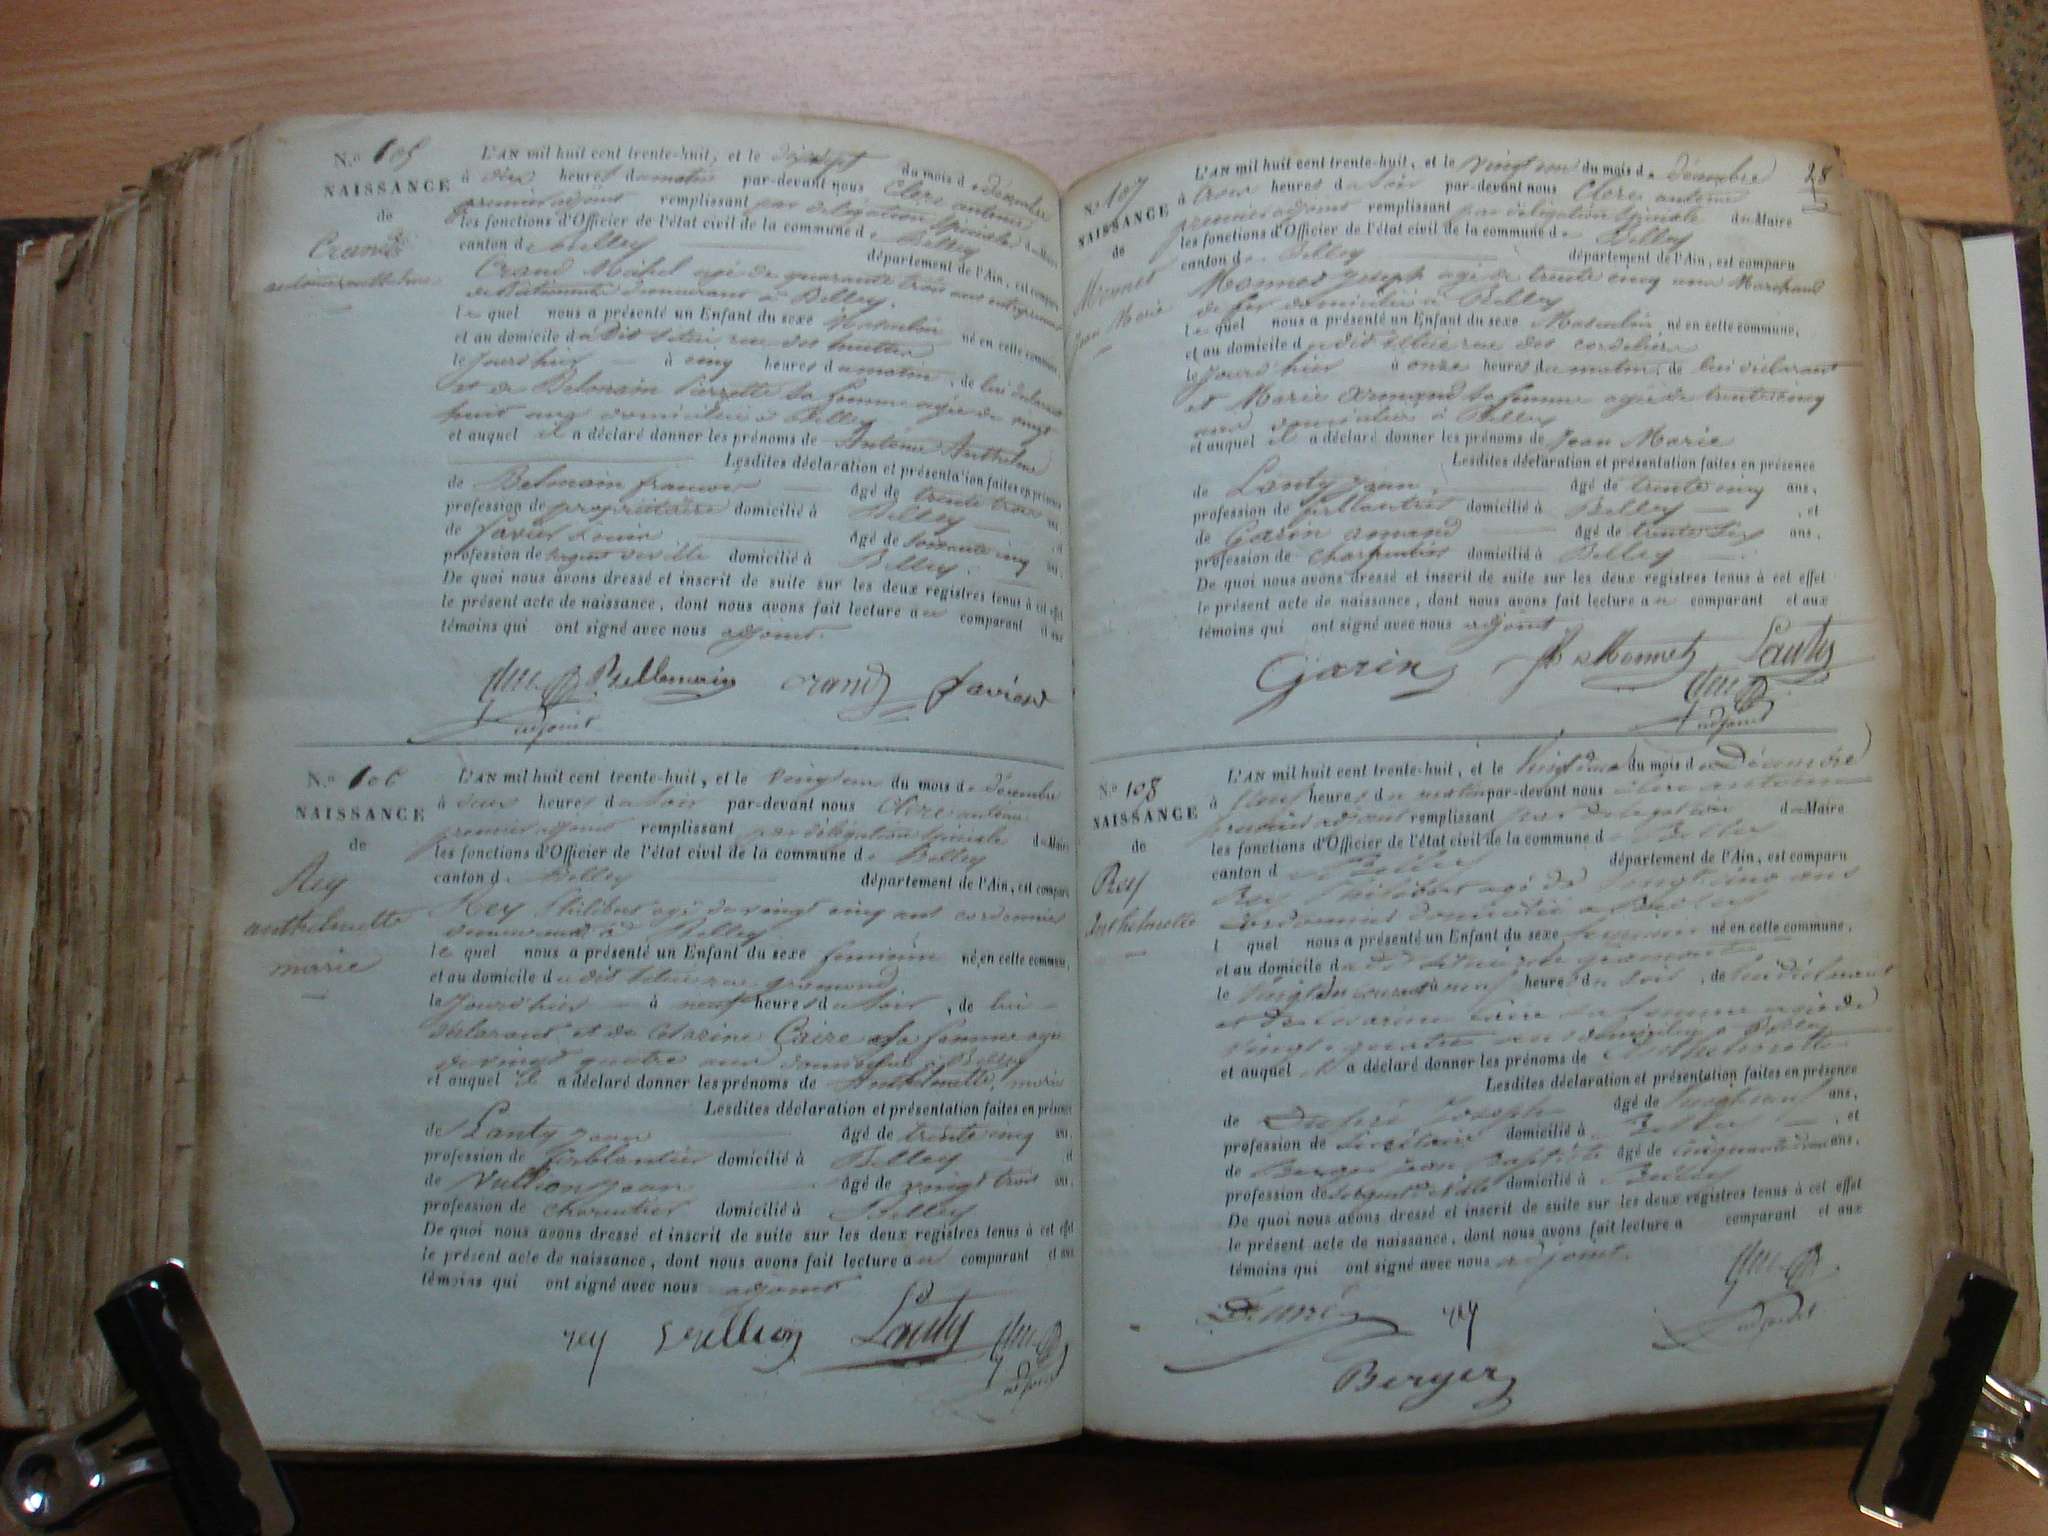 N.º 105
NAISSANCE
de
Crand
L'AN mil huit cent trente-huit, et le dixsept du mois de décembre
à dix heures du matin par-devant nous Clerc antoine
premier adjoint remplissant par délégation spéciale du Maire
les fonctions d'Officier de l'état civil de la commune de Belley
canton de Belley département de l'Ain, est comparu
Crand Michel agé de quarante trois ans
demeurant à Belley.
le quel nous a présenté un Enfant du sexe Masculin né en cette commune,
et au domicile du dit situé rue des
le jourd'hier à cinq heures du matin, de lui déclarant
et de Belmain Pierrette sa femme agée de vingt
huit ans domiciliée à Belley
et auquel il a déclaré donner les prénoms de Antoine Anthelme
Lesdites déclaration et présentation faites en présence
de Belmain françois âgé de trente trois ans,
profession de propriétaire domicilié à Belley
de Favier Louis âgé de soixante cinq
profession de sergent de ville domicilié à Belley.
De quoi nous avons dressé et inscrit de suite sur les deux registres tenus à cet effet
le présent acte de naissance, dont nous avons fait lecture au comparant et aux
témoins qui ont signé avec nous adjoint.
Bellemain crand favier
adjoint
N.º 106
NAISSANCE
de
Rey
anthelmette
marie
L'AN mil huit cent trente-huit, et le vingt un du mois de décembre
à deux heures du soir par-devant nous Clerc antoine
premier adjoint remplissant par délégation spéciale du Maire
les fonctions d'Officier de l'état civil de la commune de Belley
canton de Belley département de l'Ain, est comparu
Rey Philibert agé de vingt cinq ans cordonnier
demeurant à Belley
le quel nous a présenté un Enfant du sexe féminin né en cette commune,
et au domicile du dit situé rue gramond
le jourd'hier à neuf heures du soir, de lui
déclarant et de Clarine Caire sa femme agée
de vingt quatre ans domiciliée à Belley
et auquel il a déclaré donner les prénoms de Anthelmette marie
Lesdites déclaration et présentation faites en présence
de Lanty jean âgé de trente cinq ans,
profession de ferblantier domicilié à Belley
de Vullion jean âgé de vingt trois ans,
profession de charpentier domicilié à Belley
De quoi nous avons dressé et inscrit de suite sur les deux registres tenus à cet effet
le présent acte de naissance, dont nous avons fait lecture au comparant et aux
témoins qui ont signé avec nous adjoint
rey Vullion Lanty
adjoint
28
N.º 107
NAISSANCE
de
Monnet
Jean Marie
L'AN mil huit cent trente-huit, et le vingt un du mois de décembre
à trois heures du soir par-devant nous Clerc antoine
premier adjoint remplissant par délégation spéciale du Maire
les fonctions d'Officier de l'état civil de la commune de Belley
canton de Belley département de l'Ain, est comparu
Monnet joseph agé de trente cinq ans Marchand
de fer domicilié à Belley
le quel nous a présenté un Enfant du sexe Masculin né en cette commune,
et au domicile du dit situé rue des cordeliers
le jourd'hier à onze heures du matin, de lui déclarant
et Marie armand sa femme agée de trente cinq
ans domiciliée à Belley
et auquel il a déclaré donner les prénoms de Jean Marie
Lesdites déclaration et présentation faites en présence
de Lanty jean âgé de trente cinq ans,
profession de ferblantier domicilié à Belley, et
de Garin armand âgé de trente six ans,
profession de charpentier domicilié à Belley
De quoi nous avons dressé et inscrit de suite sur les deux registres tenus à cet effet
le présent acte de naissance, dont nous avons fait lecture au comparant et aux
témoins qui ont signé avec nous adjoint
Garin Monnet Lanty
adjoint
N.º 108
NAISSANCE
de
Rey
Anthelmette
L'AN mil huit cent trente-huit, et le Vingt deux du mois de Décembre
à neuf heures du matin par-devant nous Clerc antoine
premier adjoint remplissant par délégation du Maire
les fonctions d'Officier de l'état civil de la commune de Belley
canton de Belley département de l'Ain, est comparu
Rey Philibert agé de vingt cinq ans
Cordonnier domicilié à Belley
l quel nous a présenté un Enfant du sexe féminin né en cette commune,
et au domicile du dit situé rue gramont
le vingt du courant à neuf heures du soir, de lui déclarant
et de Clarine Caire sa femme agée de
vingt quatre ans domiciliée à Belley
et auquel il a déclaré donner les prénoms de Anthelmette
Lesdites déclaration et présentation faites en présence
de Joseph âgé de vingt ans,
profession de secrétaire domicilié à Belley, et
de Berger jean Baptiste âgé de cinquante deux ans,
profession de sergent de ville domicilié à Belley
De quoi nous avons dressé et inscrit de suite sur les deux registres tenus à cet effet
le présent acte de naissance, dont nous avons fait lecture a comparant et aux
témoins qui ont signé avec nous adjoint.
rey
adjoint
Berger